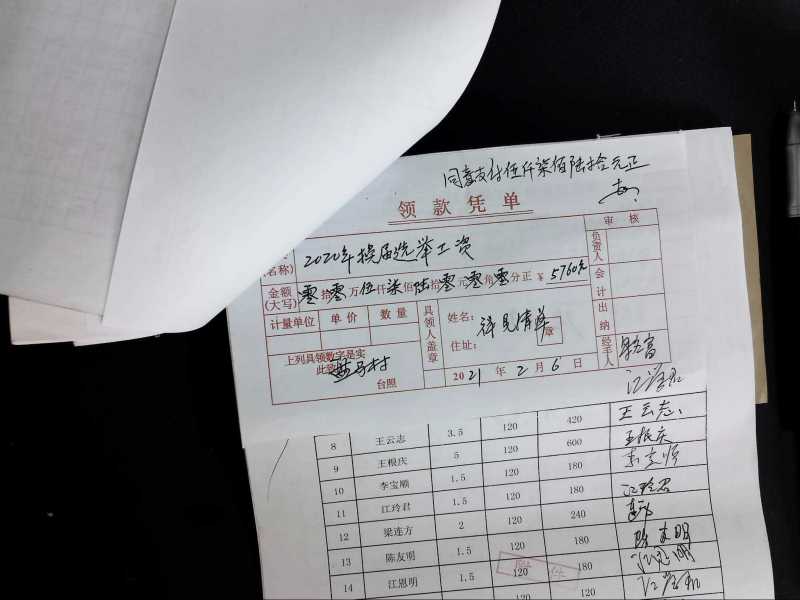 同意支付伍仟柒佰陆拾元正
领款凭单
审核
(名称)
2020年换届选举工资
负责人
金额(大写)
零拾零万伍仟柒佰陆拾零元零角零分正 ¥ 5760元
会计
计量单位 单价 数量
具领人盖章
姓名: 详见清单
住址:
章
出纳
上列具领数字是实
此致
台照
2021年2月6日
经手人
8 王云志 3.5 120 420 王云志
9 王根庆 5 120 600 王根庆
10 李宝顺 1.5 120 180
11 江玲君 1.5 120 180 江玲君
12 梁连方 2 120 240
13 陈友明 1.5 120 180 陈友明
14 江恩明 1.5 120 180 江恩明
附件